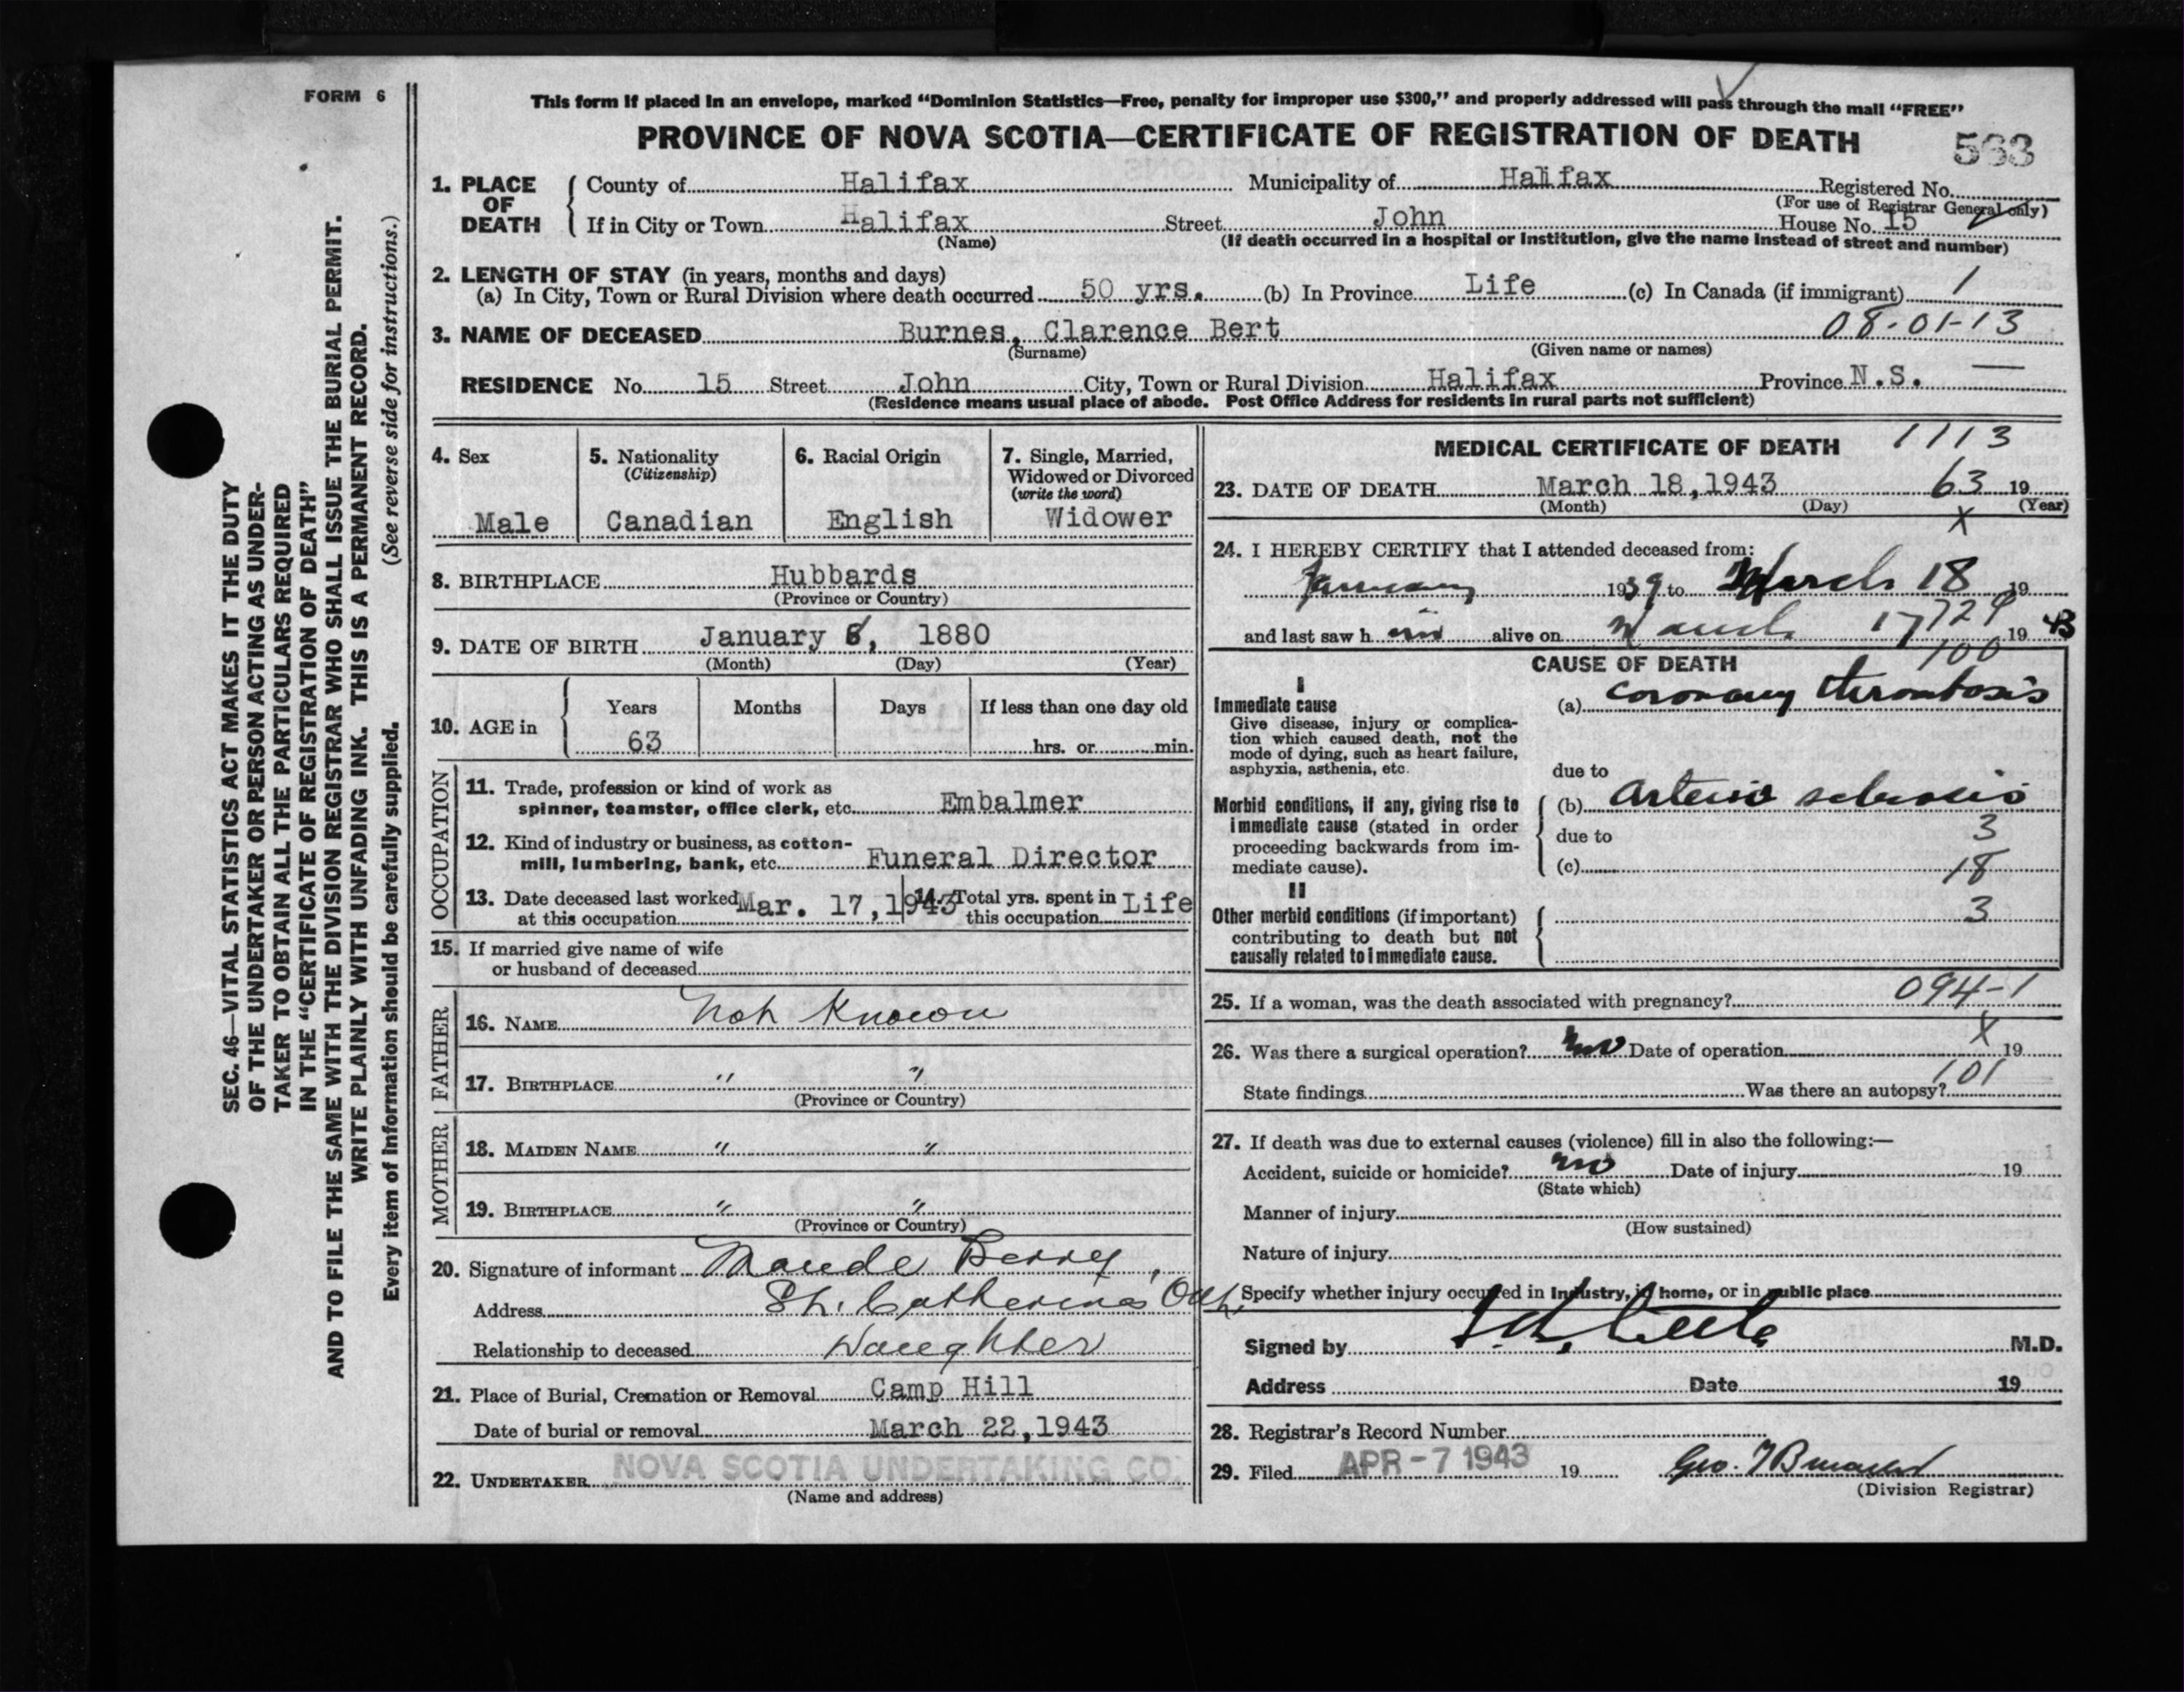 FORM 6
This form if placed in an envelope, marked "Dominion Statistics—Free, penalty for improper use $300," and properly addressed will pass through the mail "FREE"
PROVINCE OF NOVA SCOTIA—CERTIFICATE OF REGISTRATION OF DEATH
563
SEC. 46—VITAL STATISTICS ACT MAKES IT THE DUTY
OF THE UNDERTAKER OR PERSON ACTING AS UNDER-
TAKER TO OBTAIN ALL THE PARTICULARS REQUIRED
IN THE "CERTIFICATE OF REGISTRATION OF DEATH"
AND TO FILE THE SAME WITH THE DIVISION REGISTRAR WHO SHALL ISSUE THE BURIAL PERMIT.
WRITE PLAINLY WITH UNFADING INK. THIS IS A PERMANENT RECORD.
Every item of information should be carefully supplied. (See reverse side for instructions.)
1. PLACE OF DEATH
County of Halifax Municipality of Halifax Registered No.
(For use of Registrar General only)
If in City or Town Halifax Street John House No. 15
(Name) (If death occurred in a hospital or institution, give the name instead of street and number)
2. LENGTH OF STAY (in years, months and days)
(a) In City, Town or Rural Division where death occurred 50 yrs. (b) In Province Life (c) In Canada (if immigrant) 1
3. NAME OF DECEASED Burnes, Clarence Bert 08-01-13
(Surname) (Given name or names)
RESIDENCE No. 15 Street John City, Town or Rural Division Halifax Province N.S. —
(Residence means usual place of abode. Post Office Address for residents in rural parts not sufficient)
4. Sex
Male
5. Nationality
(Citizenship)
Canadian
6. Racial Origin
English
7. Single, Married,
Widowed or Divorced
(write the word)
Widower
8. BIRTHPLACE Hubbards
(Province or Country)
9. DATE OF BIRTH January 6, 1880
(Month) (Day) (Year)
10. AGE in
Years Months Days If less than one day old
63 hrs. or min.
OCCUPATION
11. Trade, profession or kind of work as
spinner, teamster, office clerk, etc. Embalmer
12. Kind of industry or business, as cotton-
mill, lumbering, bank, etc. Funeral Director
13. Date deceased last worked
at this occupation Mar. 17, 1943
14. Total yrs. spent in
this occupation Life
15. If married give name of wife
or husband of deceased
FATHER
16. NAME Not Known
17. BIRTHPLACE " "
(Province or Country)
MOTHER
18. MAIDEN NAME " "
19. BIRTHPLACE " "
(Province or Country)
20. Signature of informant Maude Berry,
Address St. Catherines Ont.
Relationship to deceased Daughter
21. Place of Burial, Cremation or Removal Camp Hill
Date of burial or removal March 22, 1943
22. UNDERTAKER NOVA SCOTIA UNDERTAKING CO.
(Name and address)
MEDICAL CERTIFICATE OF DEATH 1113
23. DATE OF DEATH March 18, 1943 63 19
(Month) (Day) (Year)
X
24. I HEREBY CERTIFY that I attended deceased from:
January 1939 to March 18 19
and last saw him alive on March 17 729 19 43
CAUSE OF DEATH 100
I
Immediate cause
Give disease, injury or complica-
tion which caused death, not the
mode of dying, such as heart failure,
asphyxia, asthenia, etc.
(a) coronary thrombosis
due to
Morbid conditions, if any, giving rise to
immediate cause (stated in order
proceeding backwards from im-
mediate cause).
(b) Arterio sclerosis
due to 3
(c) 18
II
Other morbid conditions (if important)
contributing to death but not
causally related to immediate cause.
3
25. If a woman, was the death associated with pregnancy? 094-1
X
26. Was there a surgical operation? no Date of operation 19
State findings Was there an autopsy? 101
27. If death was due to external causes (violence) fill in also the following:—
Accident, suicide or homicide? no Date of injury 19
(State which)
Manner of injury
(How sustained)
Nature of injury
Specify whether injury occurred in industry, in home, or in public place
Signed by M.D.
Address Date 19
28. Registrar's Record Number
29. Filed APR - 7 1943 19
(Division Registrar)